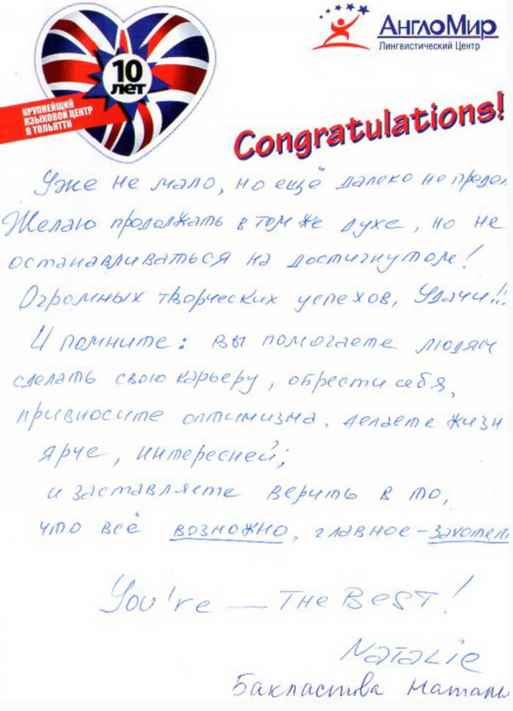 10
лет
КРУПНЕЙШИЙ
ЯЗЫКОВОЙ ЦЕНТР
В ТОЛЬЯТТИ
АнглоМир
Лингвистический Центр
Congratulations!
Уже не мало, но ещё далеко не предел
Желаю продолжать в том же духе, но не
останавливаться на достигнутом!
Огромных творческих успехов, Удачи!!!
И помните: вы помогаете людям
сделать свою карьеру, обрести себя,
привносите оптимизма, делаете жизн
ярче, интересней;
и заставляете верить в то,
что всё возможно, главное - захотет
You're — THE BEST!
Natalie
Натал